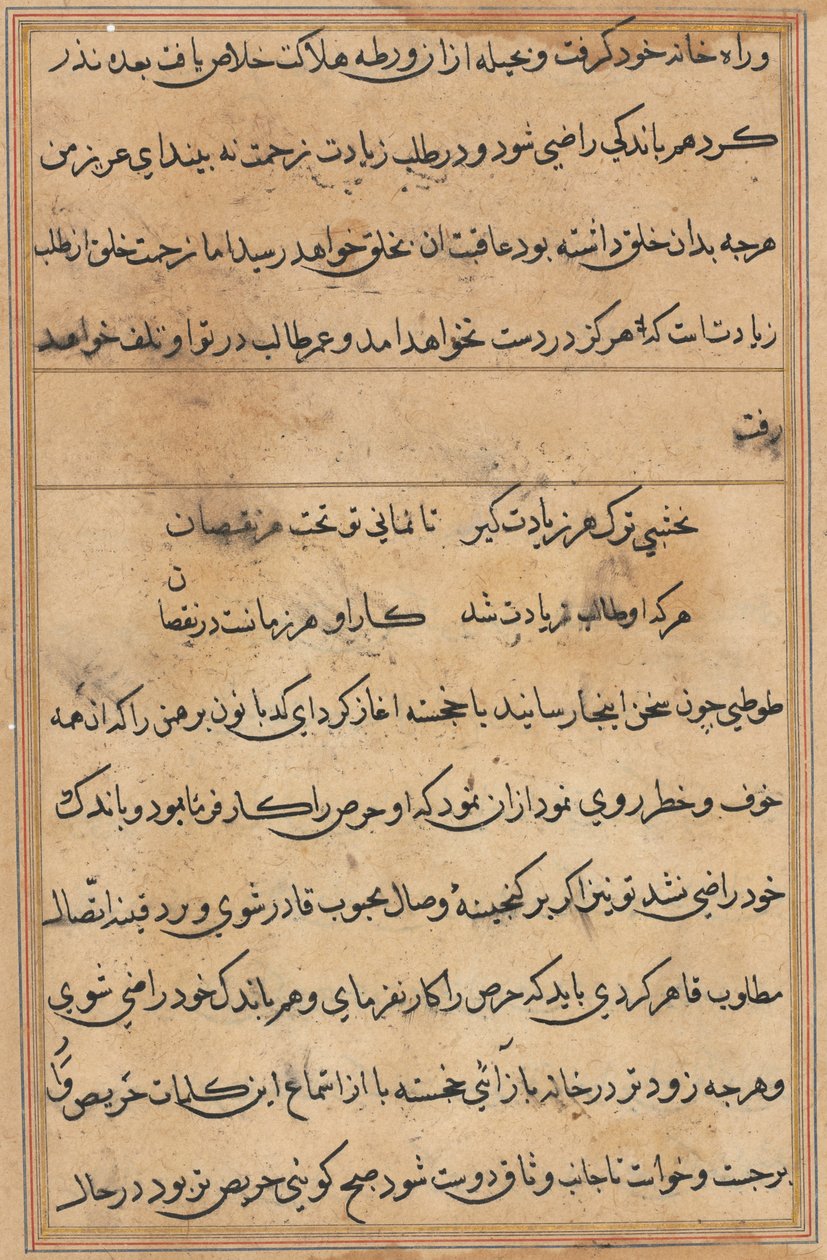 وراه خانه خود كرفت و بحيله ازان ورطه هلاكت خلاص يافت بعده نذر
كرد هم باندكي راضي شود و در طلب زيادت زحمت نه بيند اي عزيز من
هرجه بدان خلق داشته بود عاقبت ان بخلق خواهد رسيد اما زحمت خلق از طلب
زيادت است كه هركز در دست نخواهد امد و عمر طالب در توا و تلف خواهد
رفت
نخشبي ترك هر زيادت كير تا نماني تو تحت هر نقصان
هركه او طالب زيادت شد كار او هر زمانست در نقصان
طوطي چون سخن اينجا رسانيد با خجسته اغاز كرد اي كدبانون برهمن را كه ان همه
خوف و خطر روي نمود ازان نمود كه او حرص را كار فرمابود و باندك
خود راضي نشد تو نيز اكر بر كنجينهٔ وصال محبوب قادر شوي و بر دفينه اتّصال
مطلوب قاهر كردي بايد كه حرص را كار نفرماي و هم باندك خود راضي شوي
و هرجه زودتر در خانه باز آئي خجسته با از استماع اين كلمات حريص وار
برجست و خواست تا جانب وثاق دوست شود صبح كوئي حريص تر بود در حال